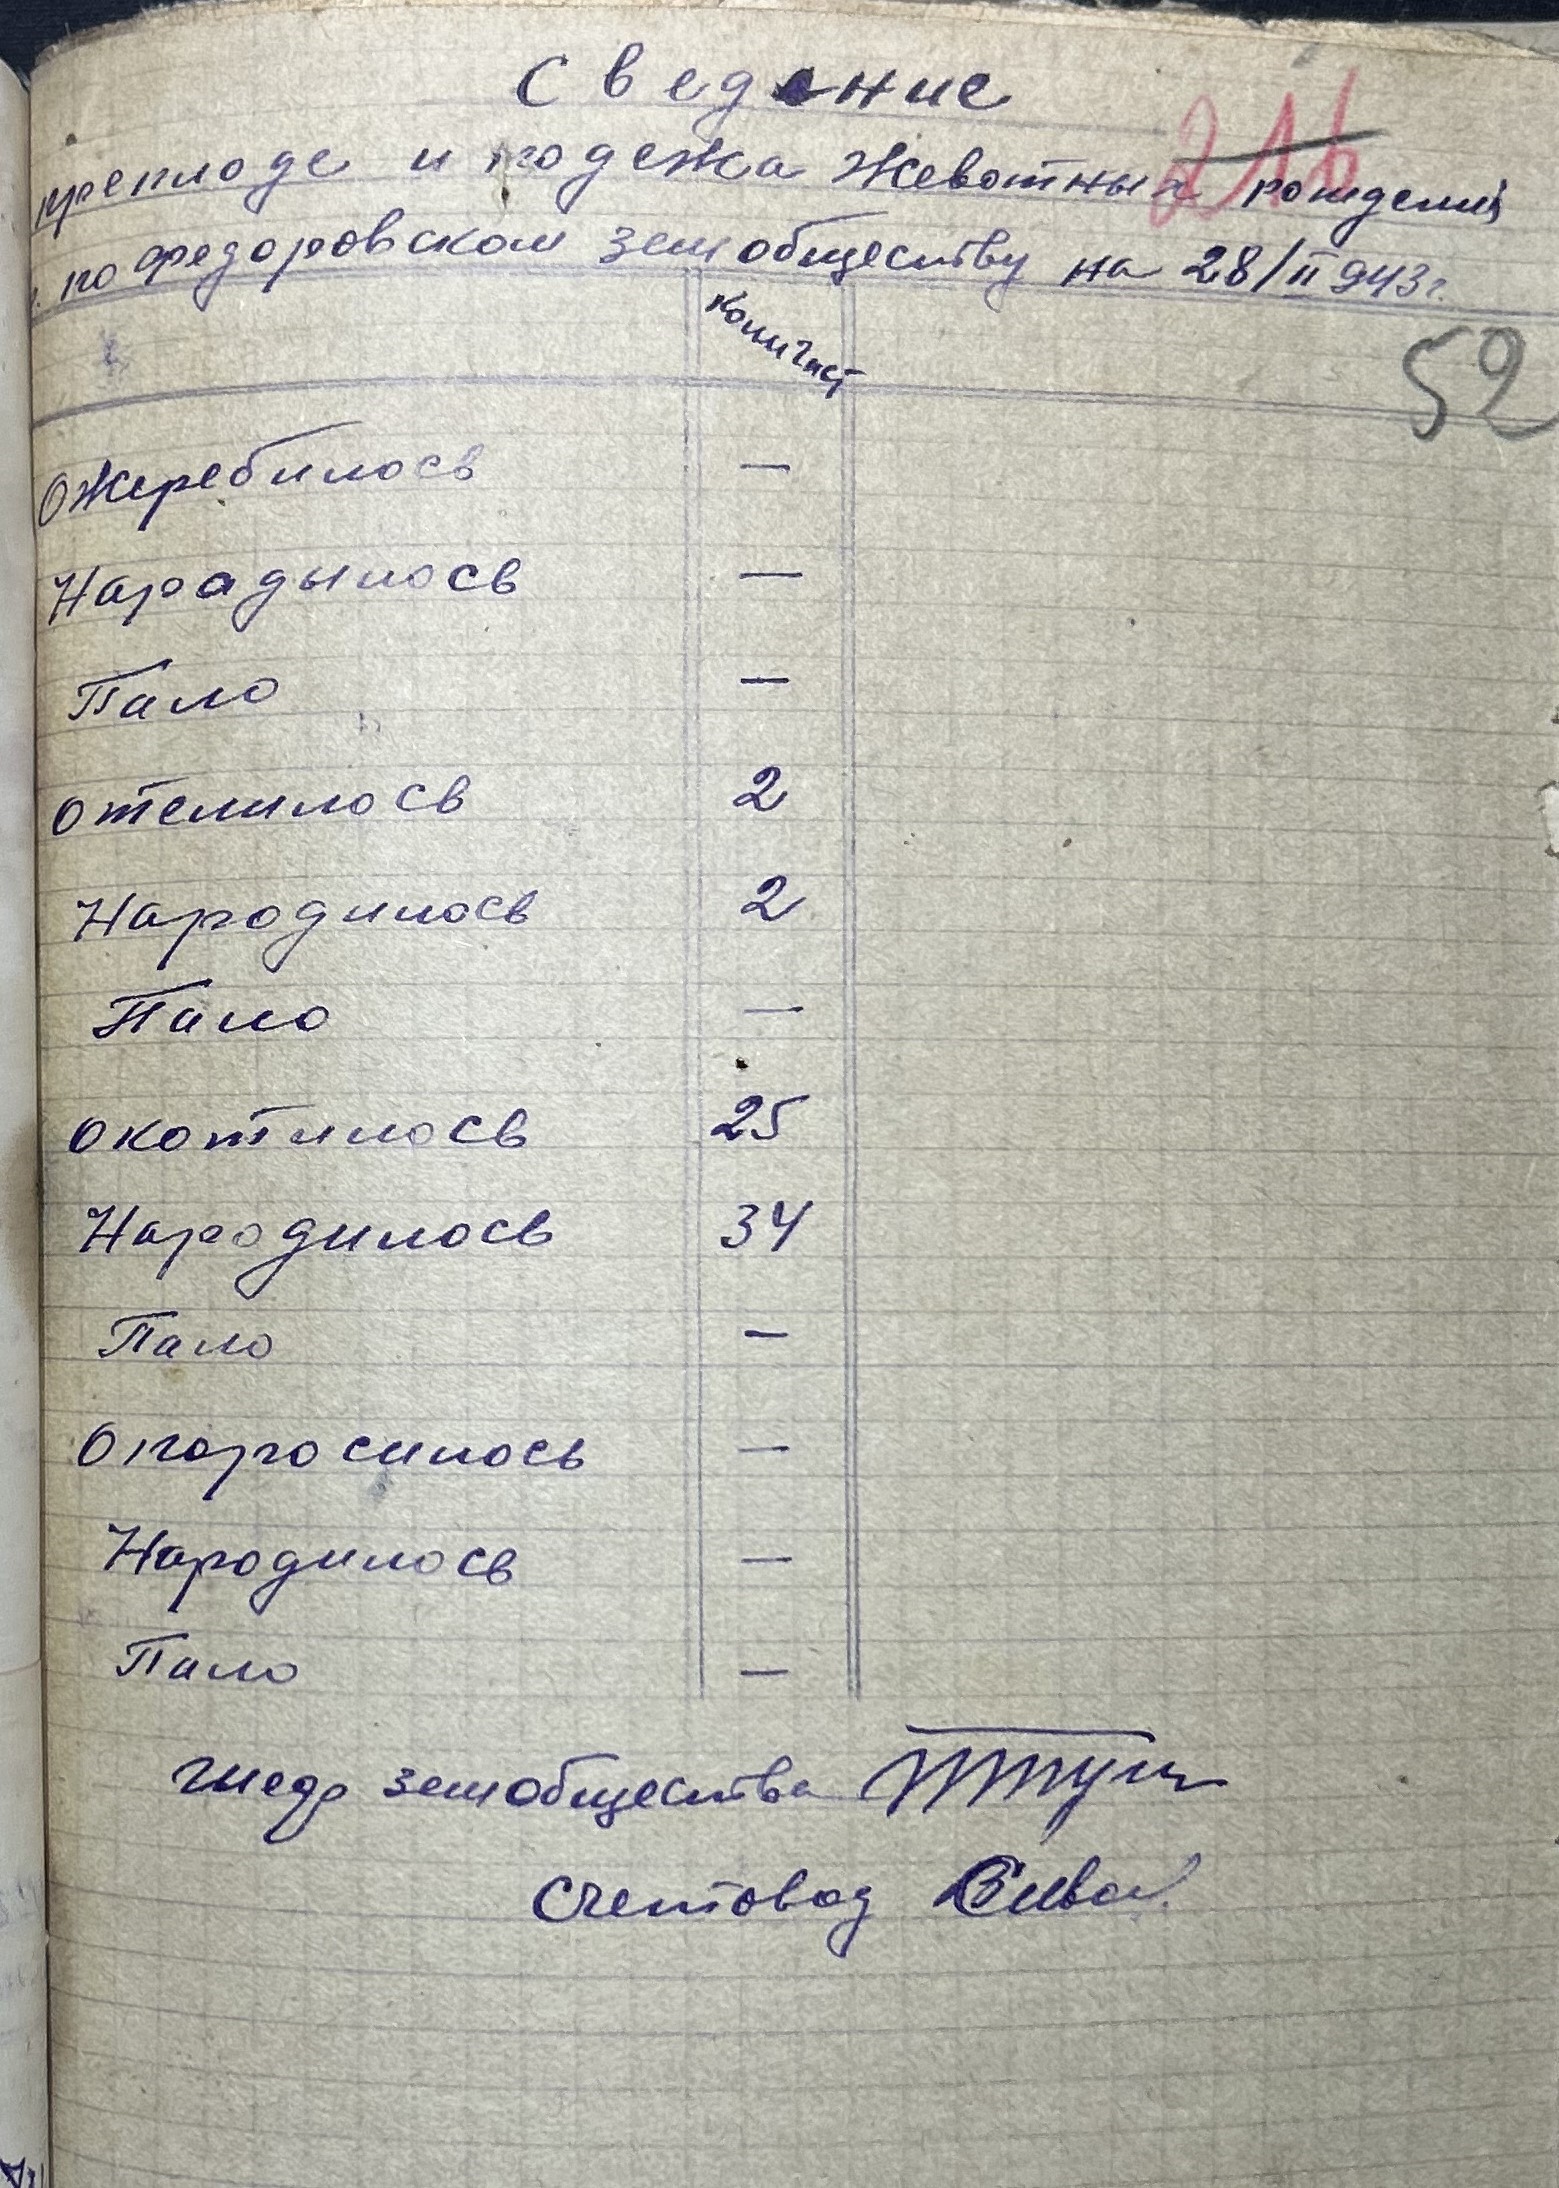 Сведение
преплоде и подежа жевотных рождений
по федоровском земобществу на 28/II 943г.
216
52
Количест
Ожеребилось —
Нарадылось —
Пало —
отелилось 2
Народилось 2
Пало —
окотилось 25
Народилось 34
Пало —
Опоросилось —
Народилось —
Пало —
земобщества
счетовод